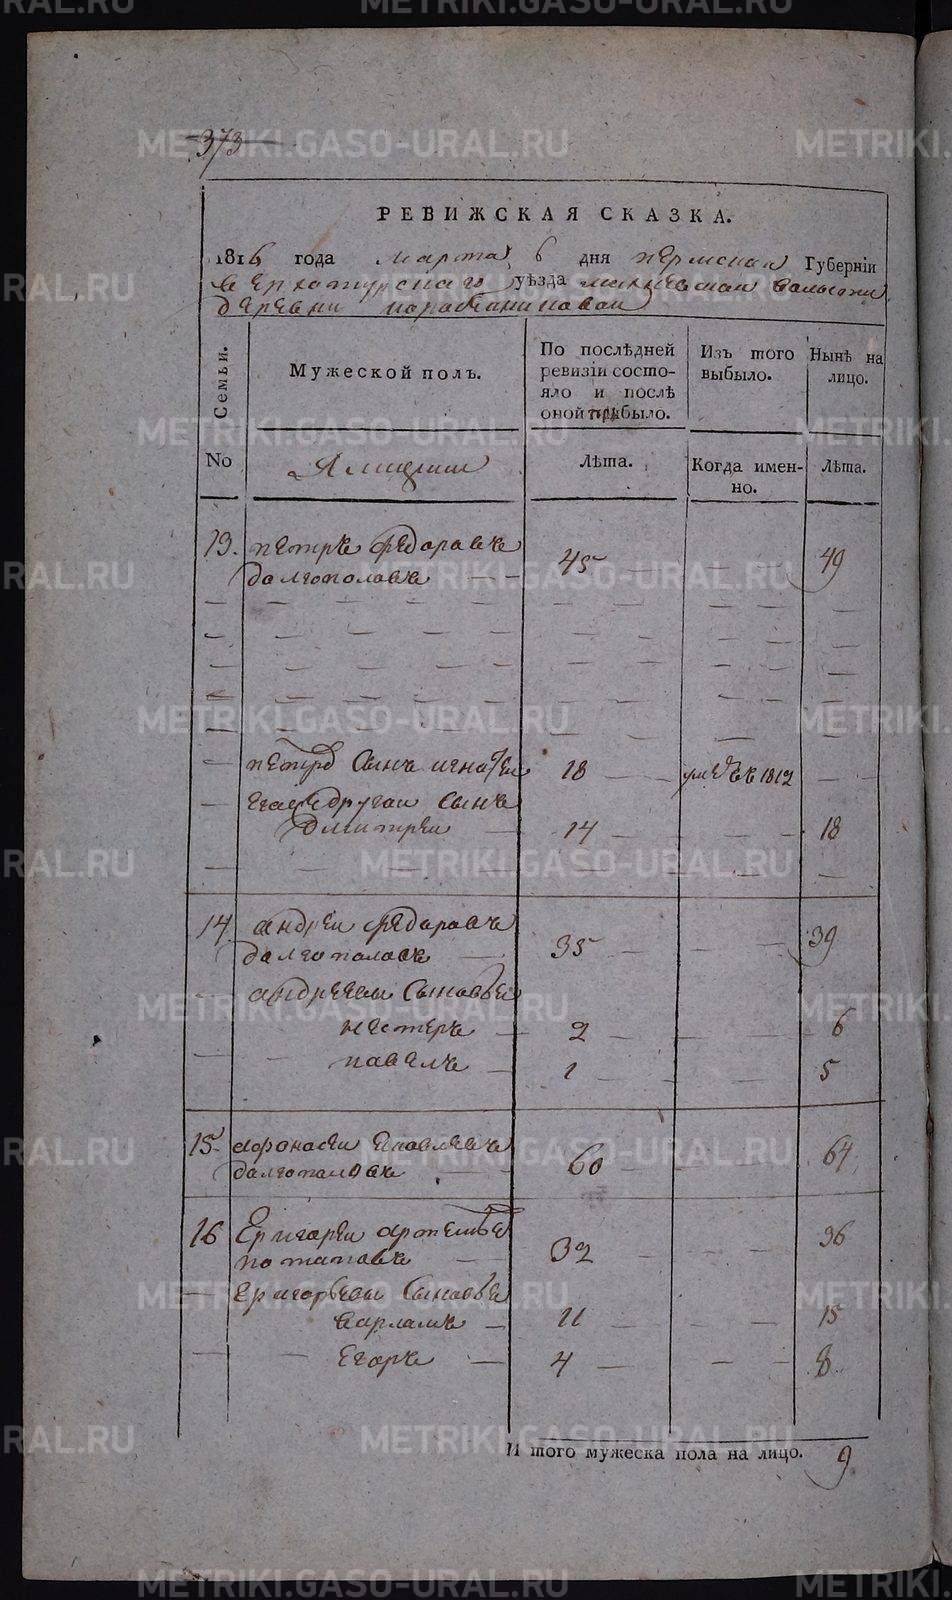 373
РЕВИЖСКАЯ СКАЗКА.
1816 года марта 6 дня пермской Губерніи
верхотурскаго уѣзда волости
деревни
Семьи.
Мужеской полъ.
По послѣдней ревизіи состояло и послѣ оной прибыло.
Изъ того выбыло.
Нынѣ на лицо.
No
Лѣта.
Когда именно.
Лѣта.
13. петръ федоравъ
далгополавъ 45 49
петра сынъ игнатеи 18 умѣръ въ 1812
егаже другаи сынъ
дмитреи 14 18
14 андреи федоравъ
далгополавъ 35 39
андреевы сыновьи
нестеръ 2 6
павелъ 1 5
15 афонасеи яковлевъ
далгополовъ 60 64
16 григореи артемьв
потаповъ 32 36
григорьевы сыновьи
варламъ 11 15
егоръ 4 8
И того мужеска пола на лицо. 9
METRIKI.GASO-URAL.RU